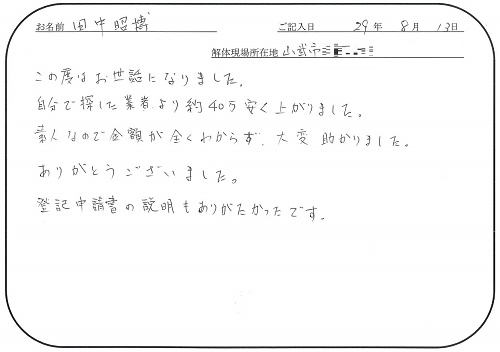 お名前 田中昭博 ご記入日 29年 8月 13日
解体現場所在地 山武市
この度はお世話になりました。
自分で探した業者より約40万安く上がりました。
素人なので金額が全くわからず、大変助かりました。
ありがとうございました。
登記申請書の説明もありがたかったです。